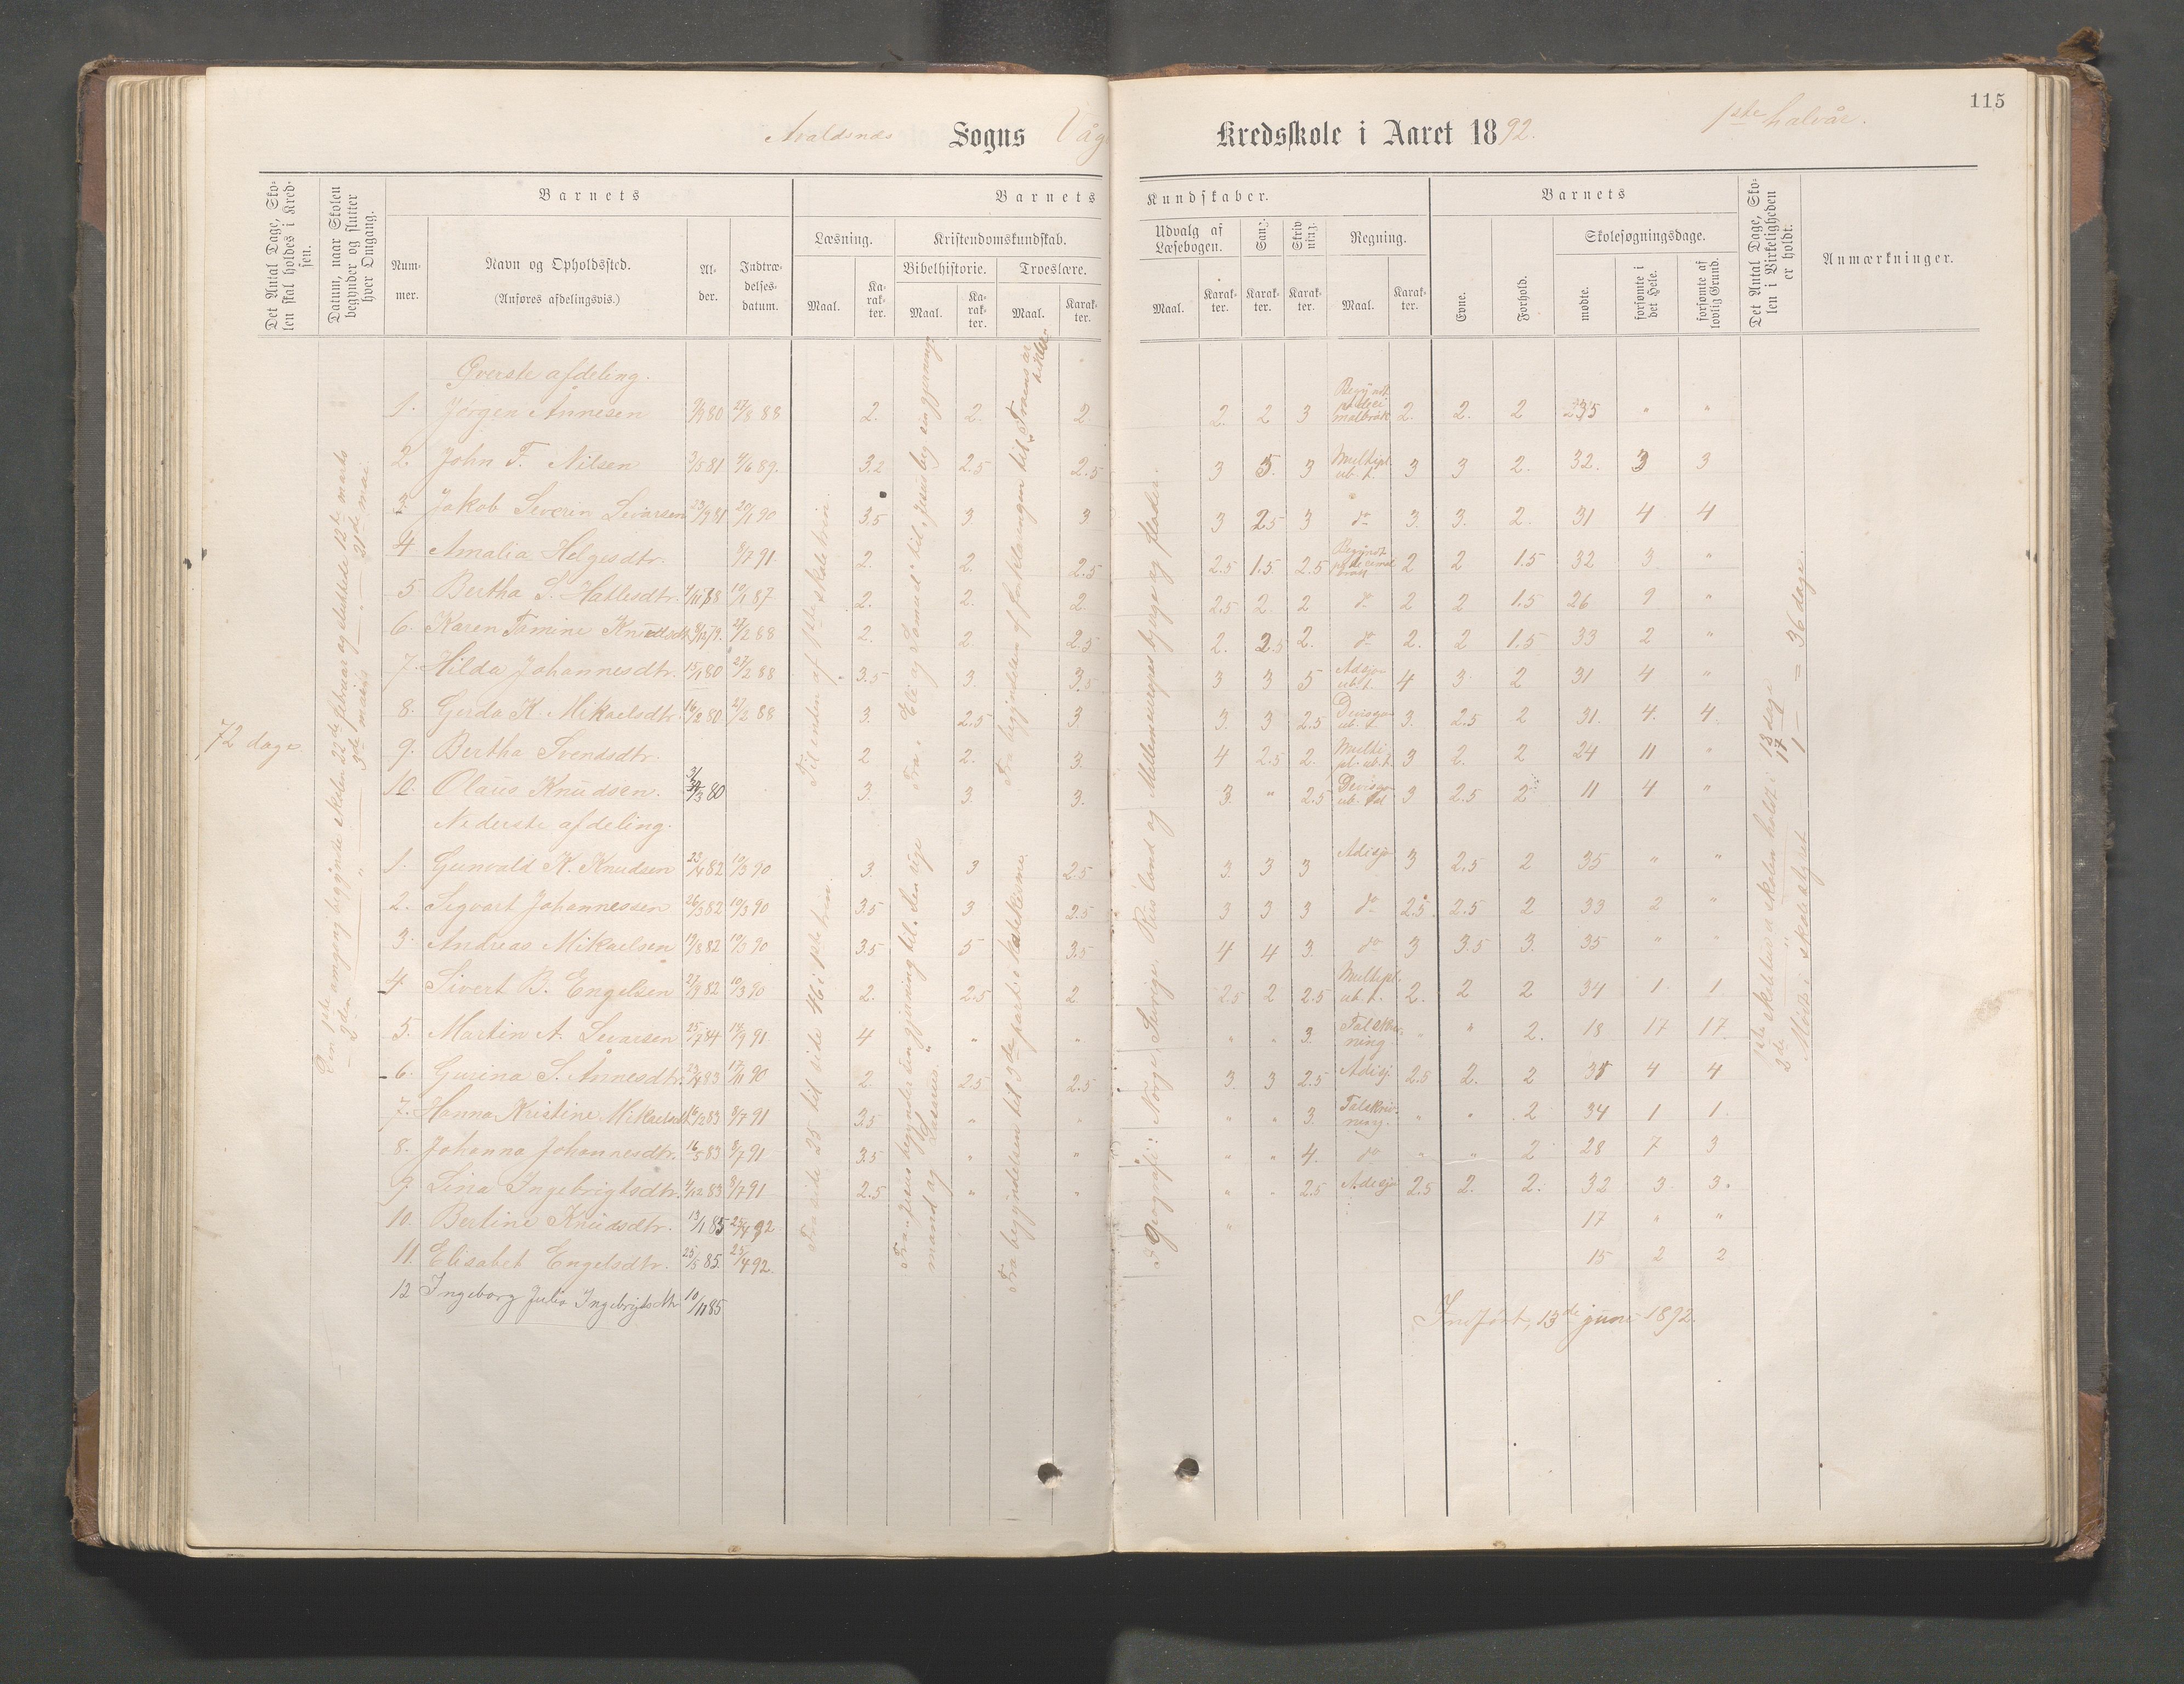 115
Avaldsnes Sogns Våge Kredsskole i Aaret 1892. 1ste halvår.
Det Antal Dage, Skolen skal holdes i Kredsen.
Datum, naar Skolen begynder og slutter hver Omgang.
Barnets
Nummer.
Navn og Opholdssted.
(Anføres afdelingsvis.)
Alder.
Indtrædelsesdatum.
Barnets Kundskaber.
Læsning.
Maal.
Karakter.
Kristendomskundskab.
Bibelhistorie.
Maal.
Karakter.
Troeslære.
Maal.
Karakter.
Udvalg af Læsebogen.
Maal.
Karakter.
Sang.
Karakter.
Skrivning.
Karakter.
Regning.
Maal.
Karakter.
Barnets
Evne.
Forhold.
Skolesøgningsdage.
mødte.
forsømte i det Hele.
forsømte af lovlig Grund.
Det Antal Dage, Skolen i Virkeligheden er holdt.
Anmærkninger.
72 dage.
Øverste afdeling.
1. Jørgen Ånnesen 80 27/8 88 2. 2. 2 2. 2 3 2. 2. 2 35 " "
2. John F. Nilsen 3/5 81 4/6 89. 3.2 2.5 2.5 3 5. 3 Multipl. ub. t. 3 3 2. 32. 3 3
3. Jakob Severin Sivarsen 23/9 81 20/1 90 3.5 3 3 3 2.5 3 do 3. 3. 2. 31 4 4
4 Amalia Helgesdtr. 8/7 91. 2. 2. 2.5 2.5 1.5. 2.5 2 2 1.5 32 3 "
5 Bertha S. Hatlesdtr. 10/1 87 2. 2. 2. 2.5 2. 2 do 2 2 1.5 26 9 "
6. Karen Tamine Knudsdt. 79. 27/2 88 2. 2. 2.5 2. 2.5 2. do 2. 2 1.5 33 2 "
7. Hilda Johannesdtr. 15/1 80 27/2 88 3.5 3. 3.5 3 3 5 Adsjo ub. t. 4 3. 2 31 4 "
8. Gerda K. Mikaelsdtr. 16/2 80 27/2 88 3. 2.5 3 3. 3 2.5 Divisjo ub. t. 3. 2.5 2 31. 4. 4.
9. Bertha Svendsdtr. 2. 2. 3. 4 2.5 2. Multipl. ub. t. 3 2. 2 24 11 "
10. Olaus Knudsen. 80 3. 3. 3. 3. " 2.5 Divisjo ub. tal 3 2.5 2 11 4 "
Nederste afdeling.
1. Gunvald K. Knudsen 23/4 82 10/3 90 3. 3 2.5 3. 3 3 Adisjo 3 2.5 2 35 " "
2. Sigvart Johannessen 26/3 82 10/3 90 3.5 3 2.5 3 3 3 do 2.5 2.5 2 33 2 "
3. Andreas Mikaelsen 19/8 82 10/3 90 3.5 5 3.5 4 4 3. do 3 3.5 3. 35 " "
4 Sivert B. Engelsen 27/9 82 10/3 90 2. 2.5 2. 2.5 2 2.5 Multipl. ub. t. 2. 2 2 34 1. 1.
5. Martin A. Sivarsen 25/7 84 14/9 91. 4 " " " " 3. Talskrivning " " 2. 18 17 17.
6. Gurina S. Ånnesdtr. 23/4 83 17/11 90 2. 2.5 2.5 3. 3 2.5 Adisj. 2.5 2. 2 31 4 4
7. Hanna Kristine Mikaelsdt. 16/12 83 8/7 91 3.5 " " " " 3. Talskrivning. " " 2 34 1 1.
8. Johanna Johannesdtr. 16/5 83 8/7 91 3.5 " " " " 4. do " " 2 28 7 3
9. Lina Ingebrigtsdtr. 4/12 83 8/7 91 2.5 " " " " 2.5 Adisjo 2.5 2. 2. 32 3. 3.
10. Bertine Knudsdtr. 13/1 85 25/4 92 " 17 " "
11. Elisabet Engelsdtr. 25/5 85. 25/4 92. 15 2 2
12 Ingeborg Julia Ingebrigtsdtr 10/11 85
Den 1ste omgang begynte skolen 22de februar og sluttede 12te marts
2den — " — 3de maj — 21de mai.
Til enden af 1ste skaletrin.
Fra side 25 til side 46 i 1ste trin.
Fra Eli og Samuel til Jesus beg. sin gjerning.
Fra Jesus begynder sin gjerning til den rige mand og Lasarus.
Fra begyndelsen af forklaringen til Troens artikler
Fra begyndelsen til 3de part i Katekisme.
I geografi: Norge, Sverige, Rusland og Mellemeuropas bjerge og floder.
1ste skoletid a skolen holdt i 18 dage
2de " " 17 "
Møst i skole afsløt 1 — = 36 dage.
Indført, 13de juni 1892.